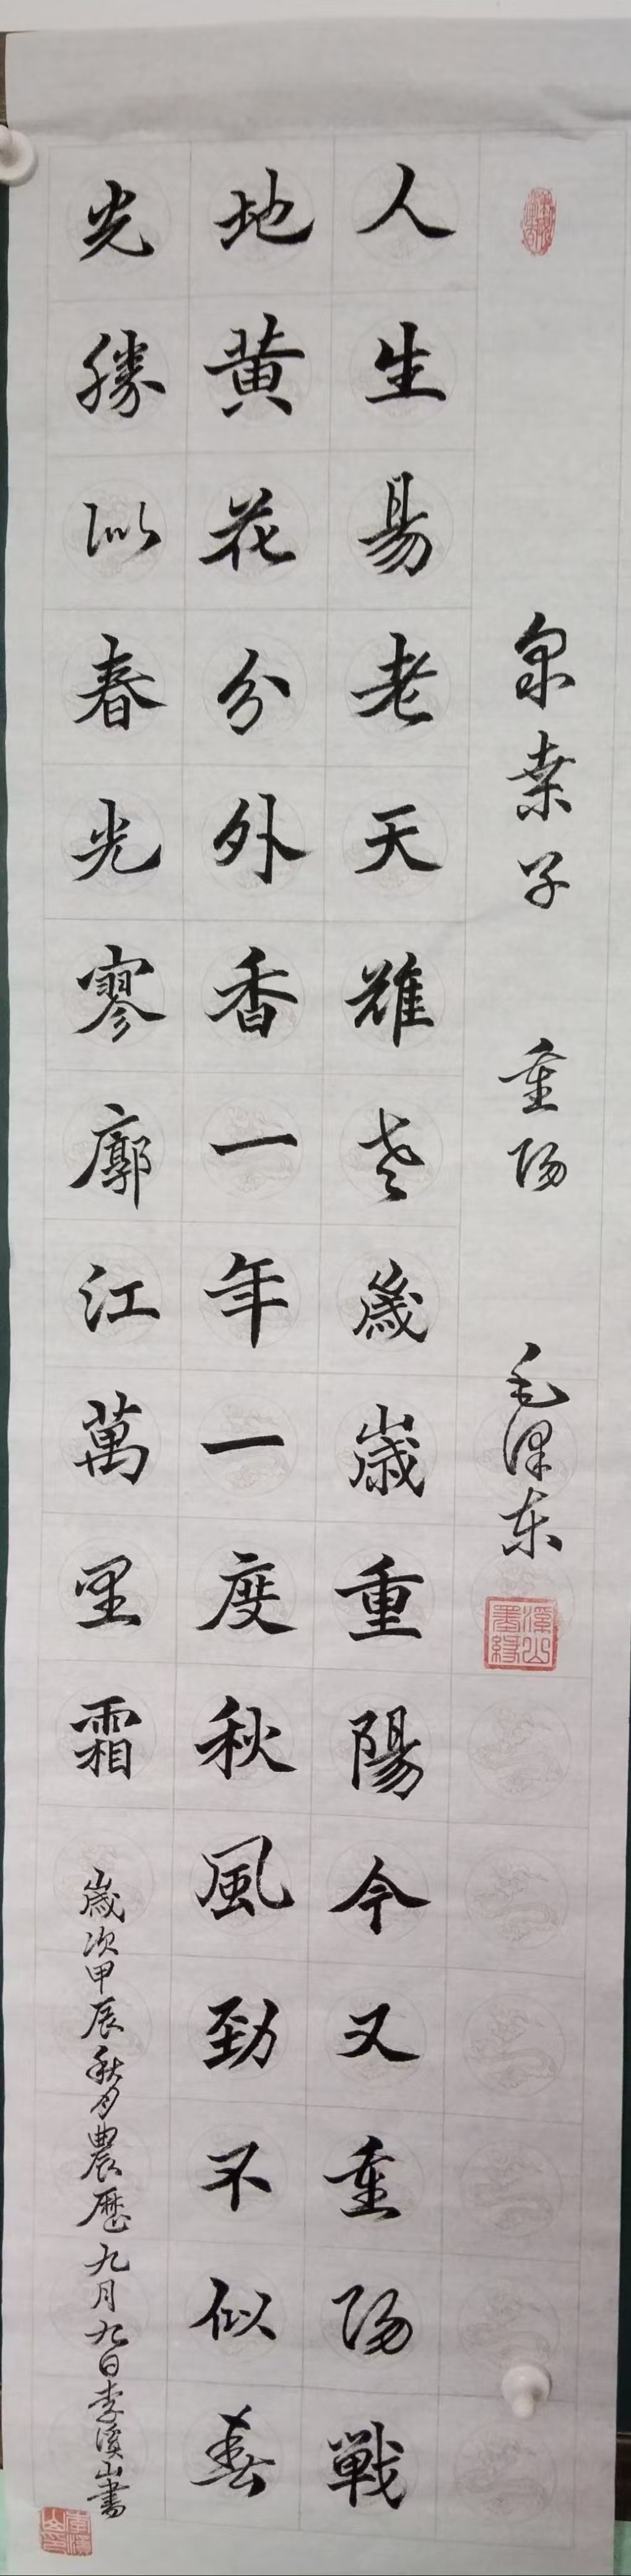 采桑子 重阳 毛泽东
溪山墨缘
人生易老天難老歲歲重陽今又重阳戰
地黄花分外香一年一度秋風勁不似春
光勝似春光寥廓江萬里霜
歲次甲辰秋月農歷九月九日李溪山書